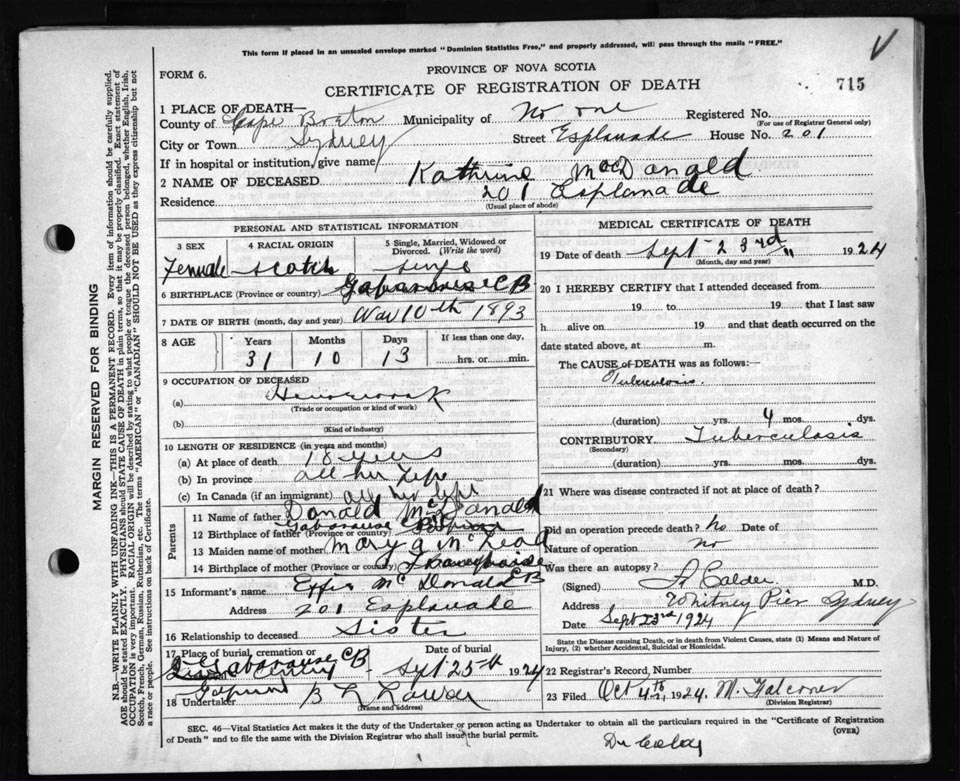 This form if placed in an unsealed envelope marked "Dominion Statistics Free," and properly addressed, will pass through the mails "FREE."
PROVINCE OF NOVA SCOTIA
FORM 6.
CERTIFICATE OF REGISTRATION OF DEATH
715
1 PLACE OF DEATH—
County of Cape Breton Municipality of No one Registered No.
(For use of Registrar General only)
City or Town Sydney Street Esplanade House No. 201
If in hospital or institution, give name
2 NAME OF DECEASED Kathrine McDonald
Residence 201 Esplanade
(Usual place of abode)
PERSONAL AND STATISTICAL INFORMATION
3 SEX 4 RACIAL ORIGIN 5 Single, Married, Widowed or Divorced. (Write the word)
Female Scotch
6 BIRTHPLACE (Province or country) Gabarouse CB
7 DATE OF BIRTH (month, day and year) Nov 10th 1893
8 AGE Years Months Days If less than one day,
31 10 13 hrs. or min.
9 OCCUPATION OF DECEASED
(a) Housework
(Trade or occupation or kind of work)
(b)
(Kind of industry)
10 LENGTH OF RESIDENCE (in years and months)
(a) At place of death 18 years
(b) In province all her life
(c) In Canada (if an immigrant) all her life
Parents
11 Name of father Donald McDonald
12 Birthplace of father (Province or country) Gabarouse
13 Maiden name of mother Mary McLeod
14 Birthplace of mother (Province or country) CB
15 Informant's name Effie McDonald
Address 201 Esplanade
16 Relationship to deceased Sister
17 Place of burial, cremation or Date of burial
Gabarouse CB Sept 25th 1924
18 Undertaker
(Name and address)
MEDICAL CERTIFICATE OF DEATH
19 Date of death Sept 23rd 1924
(Month, day and year)
20 I HEREBY CERTIFY that I attended deceased from
19 to 19 that I last saw
h alive on 19 and that death occurred on the
date stated above, at m.
The CAUSE of DEATH was as follows:—
Tuberculosis
(duration) yrs. 4 mos. dys.
CONTRIBUTORY Tuberculosis
(Secondary)
(duration) yrs. mos. dys.
21 Where was disease contracted if not at place of death?
Did an operation precede death? No Date of
Nature of operation No
Was there an autopsy?
(Signed) Calder M.D.
Address Whitney Pier Sydney
Date Sept 23rd 1924
State the Disease causing Death, or in death from Violent Causes, state (1) Means and Nature of Injury, (2) whether Accidental, Suicidal or Homicidal.
22 Registrar's Record, Number
23 Filed Oct 4th, 1924. M. Falconer
(Division Registrar)
SEC. 46—Vital Statistics Act makes it the duty of the Undertaker or person acting as Undertaker to obtain all the particulars required in the "Certificate of Registration
of Death" and to file the same with the Division Registrar who shall issue the burial permit.
(OVER)
MARGIN RESERVED FOR BINDING
N.B.—WRITE PLAINLY WITH UNFADING INK—THIS IS A PERMANENT RECORD. Every item of information should be carefully supplied.
AGE should be stated EXACTLY. PHYSICIANS should STATE CAUSE OF DEATH in plain terms, so that it may be properly classified. Exact statement of
OCCUPATION is very important. RACIAL ORIGIN will be described by stating to what people or tongue the deceased person belonged, whether English, Irish,
Scotch, French, German, Russian, Ruthenian, etc. The terms "AMERICAN" or "CANADIAN" SHOULD NOT BE USED as they express citizenship but not
a race or people. See instructions on back of Certificate.